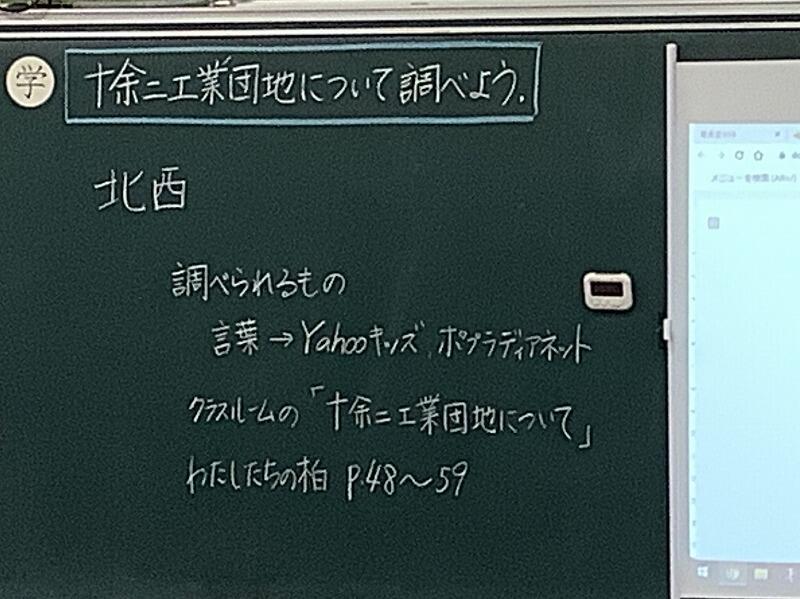 学 十余二工業団地について調べよう.
北西
調べられるもの
言葉→Yahooキッズ、ポプラディアネット
クラスルームの「十余二工業団地について」
わたしたちの柏 P.48〜59